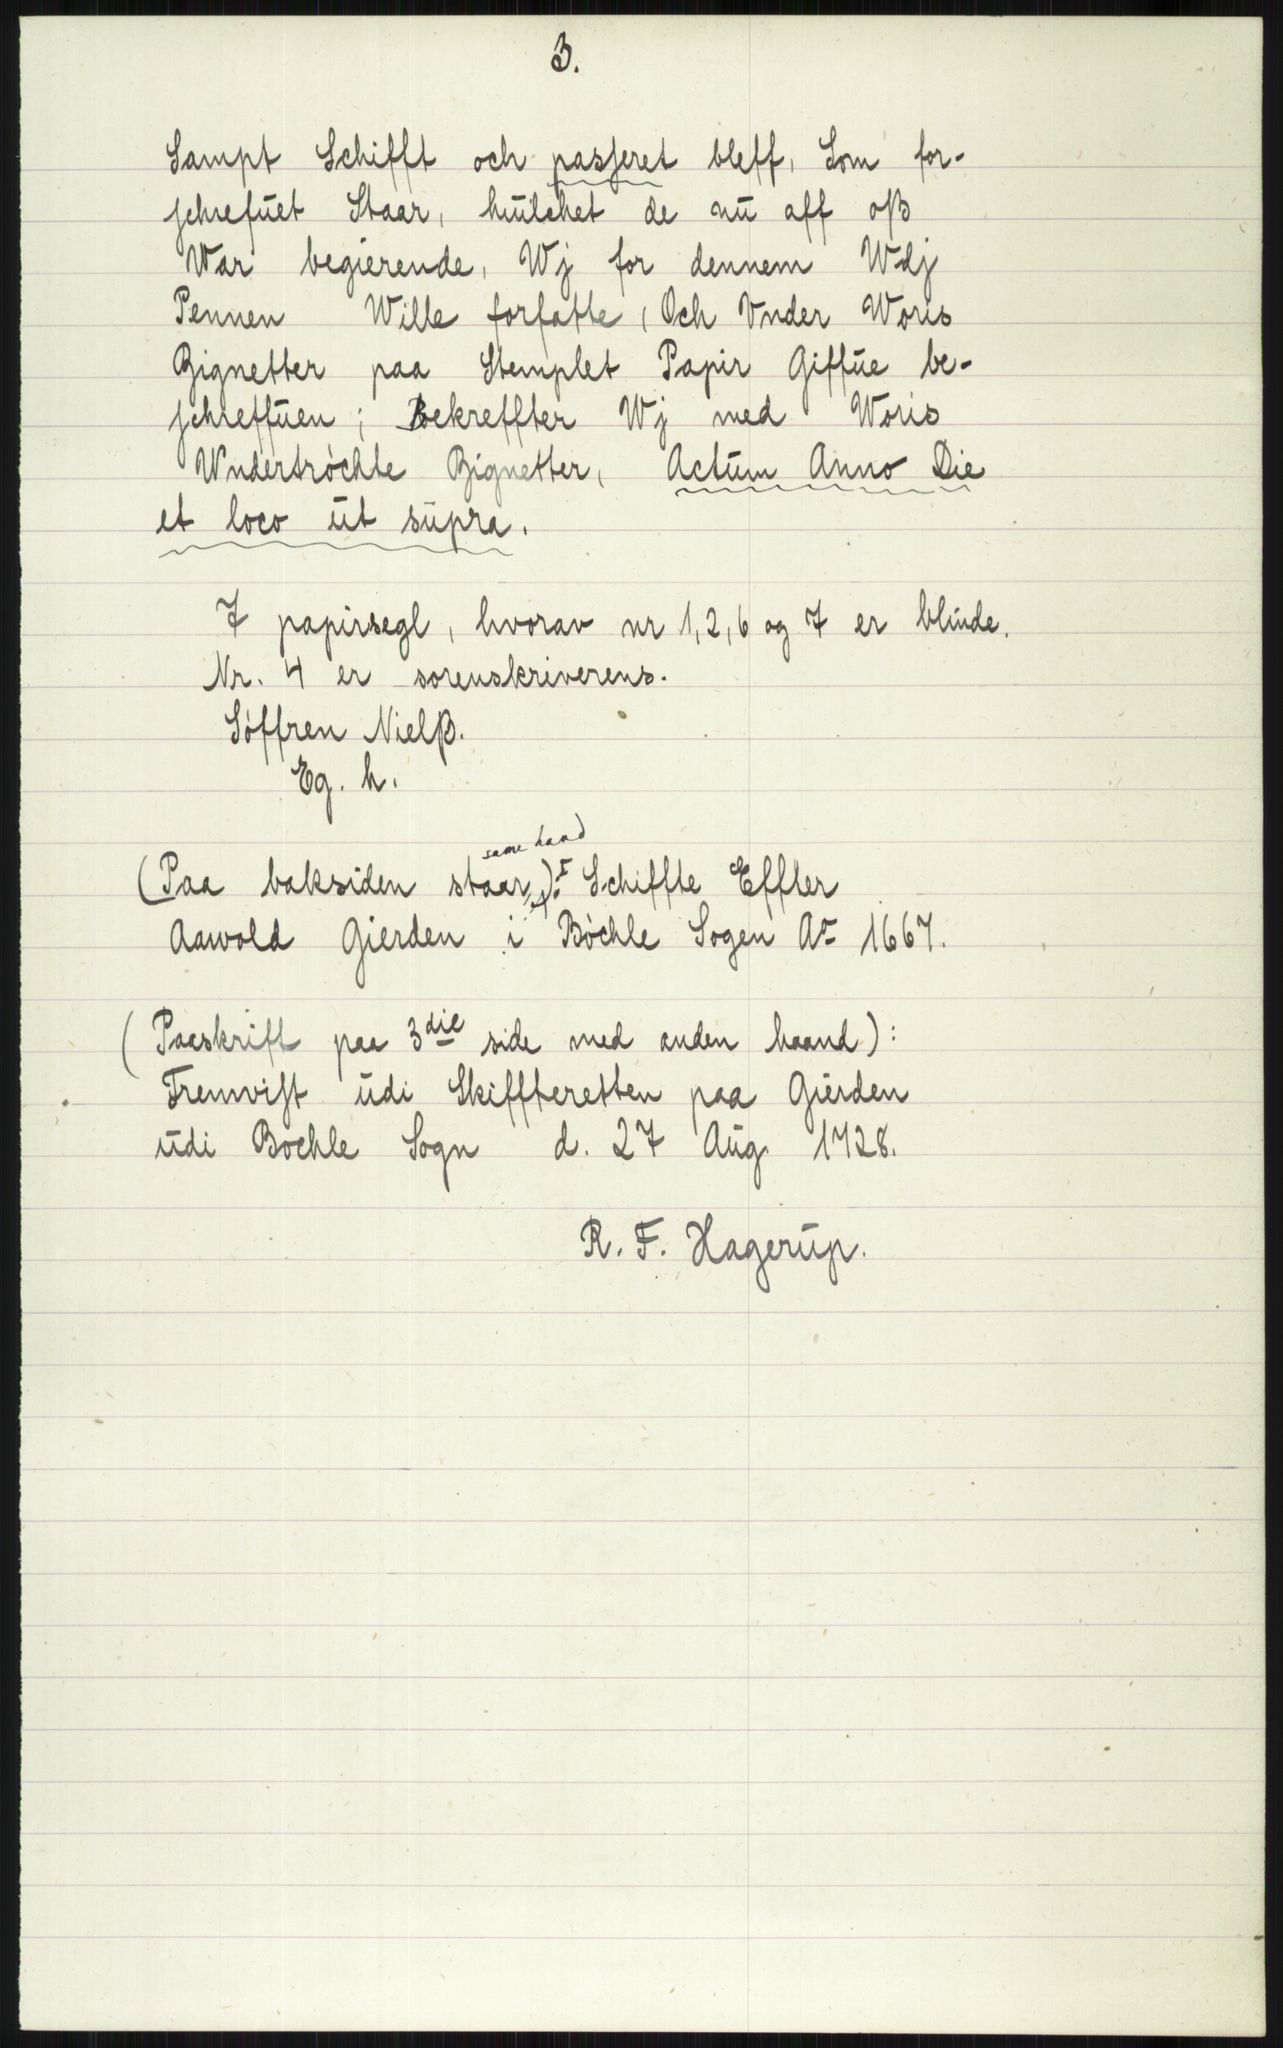 3.
Sampt Schifft och passeret bleff, Som for-
schrefuet Staar, huilchet de nu aff oß
War begierende, Wj for dennem Wdj
Pennen Wille forfatte, Och Vnder Woris
Zignetter paa Stemplet Papir Giffue be-
schreffuen; Bekreffter Wj med Woris
Wndertröchte Zignetter, Actum Anno Die
et loco ut supra.
7 papirsegl, hvorav nr 1, 2, 6 og 7 er blinde.
Nr. 4 er sorenskriverens.
Söffren Nielß.
Eg. h.
same haand
(Paa baksiden staar): Schiffte Effter
Aawold Gierden i Böchle Sogen Ao 1667.
(Paaskrift paa 3die side med anden haand):
Fremvist udi Skiffteretten paa Gierden
udi Bochle Sogn d. 27 Aug. 1728.
R. F. Hagerup.